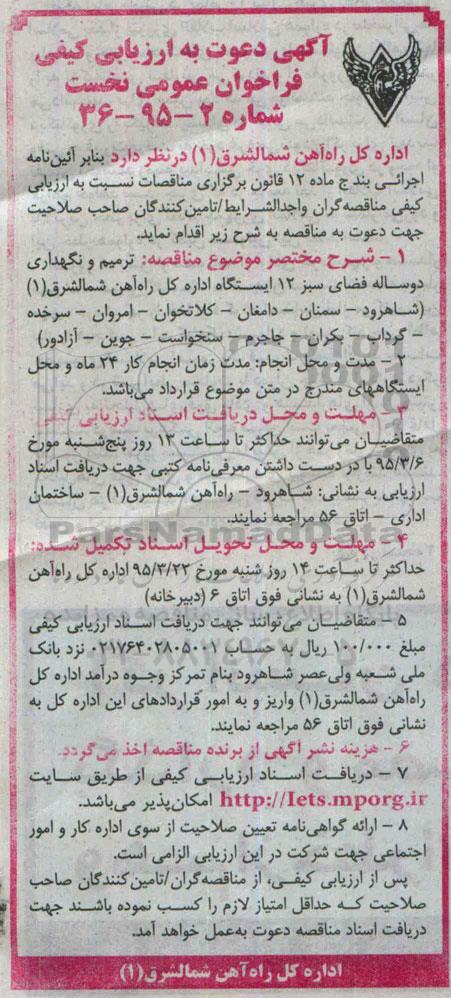 آگهی دعوت به ارزیابی کیفی
فراخوان عمومی نخست
شماره ۲ – ۹۵ – ۳۶
اداره کل راه‌آهن شمالشرق(۱) درنظر دارد بنابر آئین‌نامه
اجرائی بند ج ماده ۱۲ قانون برگزاری مناقصات نسبت به ارزیابی
کیفی مناقصه‌گران واجدالشرایط/تامین‌کنندگان صاحب صلاحیت
جهت دعوت به مناقصه به شرح زیر اقدام نماید.
۱ – شرح مختصر موضوع مناقصه: ترمیم و نگهداری
دوساله فضای سبز ۱۲ ایستگاه اداره کل راه‌آهن شمالشرق(۱)
(شاهرود – سمنان – دامغان – کلاتخوان – امروان – سرخده
– گرداب – بکران – جاجرم – سنخواست – جوین – آزادور)
۲ – مدت و محل انجام: مدت زمان انجام کار ۲۴ ماه و محل
ایستگاههای مندرج در متن موضوع قرارداد می‌باشد.
۳ – مهلت و محل دریافت اسناد ارزیابی کیفی
متقاضیان می‌توانند حداکثر تا ساعت ۱۳ روز پنج‌شنبه مورخ
۹۵/۳/۶ با در دست داشتن معرفی‌نامه کتبی جهت دریافت اسناد
ارزیابی به نشانی: شاهرود – راه‌آهن شمالشرق(۱) – ساختمان
اداری – اتاق ۵۶ مراجعه نمایند.
ParsNamadData
۴ – مهلت و محل تحویل اسناد تکمیل شده:
حداکثر تا ساعت ۱۴ روز شنبه مورخ ۹۵/۳/۲۲ اداره کل راه‌آهن
شمالشرق(۱) به نشانی فوق اتاق ۶ (دبیرخانه)
۵ – متقاضیان می‌توانند جهت دریافت اسناد ارزیابی کیفی
مبلغ ۱۰۰/۰۰۰ ریال به حساب ۰۲۱۷۶۴۰۲۸۰۵۰۰۱ نزد بانک
ملی شعبه ولی‌عصر شاهرود بنام تمرکز وجوه درآمد اداره کل
راه‌آهن شمالشرق(۱) واریز و به امور قراردادهای این اداره کل به
نشانی فوق اتاق ۵۶ مراجعه نمایند.
۶ – هزینه نشر آگهی از برنده مناقصه اخذ می‌گردد.
۷ – دریافت اسناد ارزیابی کیفی از طریق سایت
http://Iets.mporg.ir امکان‌پذیر می‌باشد.
۸ – ارائه گواهی‌نامه تعیین صلاحیت از سوی اداره کار و امور
اجتماعی جهت شرکت در این ارزیابی الزامی است.
پس از ارزیابی کیفی، از مناقصه‌گران/تامین‌کنندگان صاحب
صلاحیت که حداقل امتیاز لازم را کسب نموده باشند جهت
دریافت اسناد مناقصه دعوت به‌عمل خواهد آمد.
اداره کل راه‌آهن شمالشرق(۱)